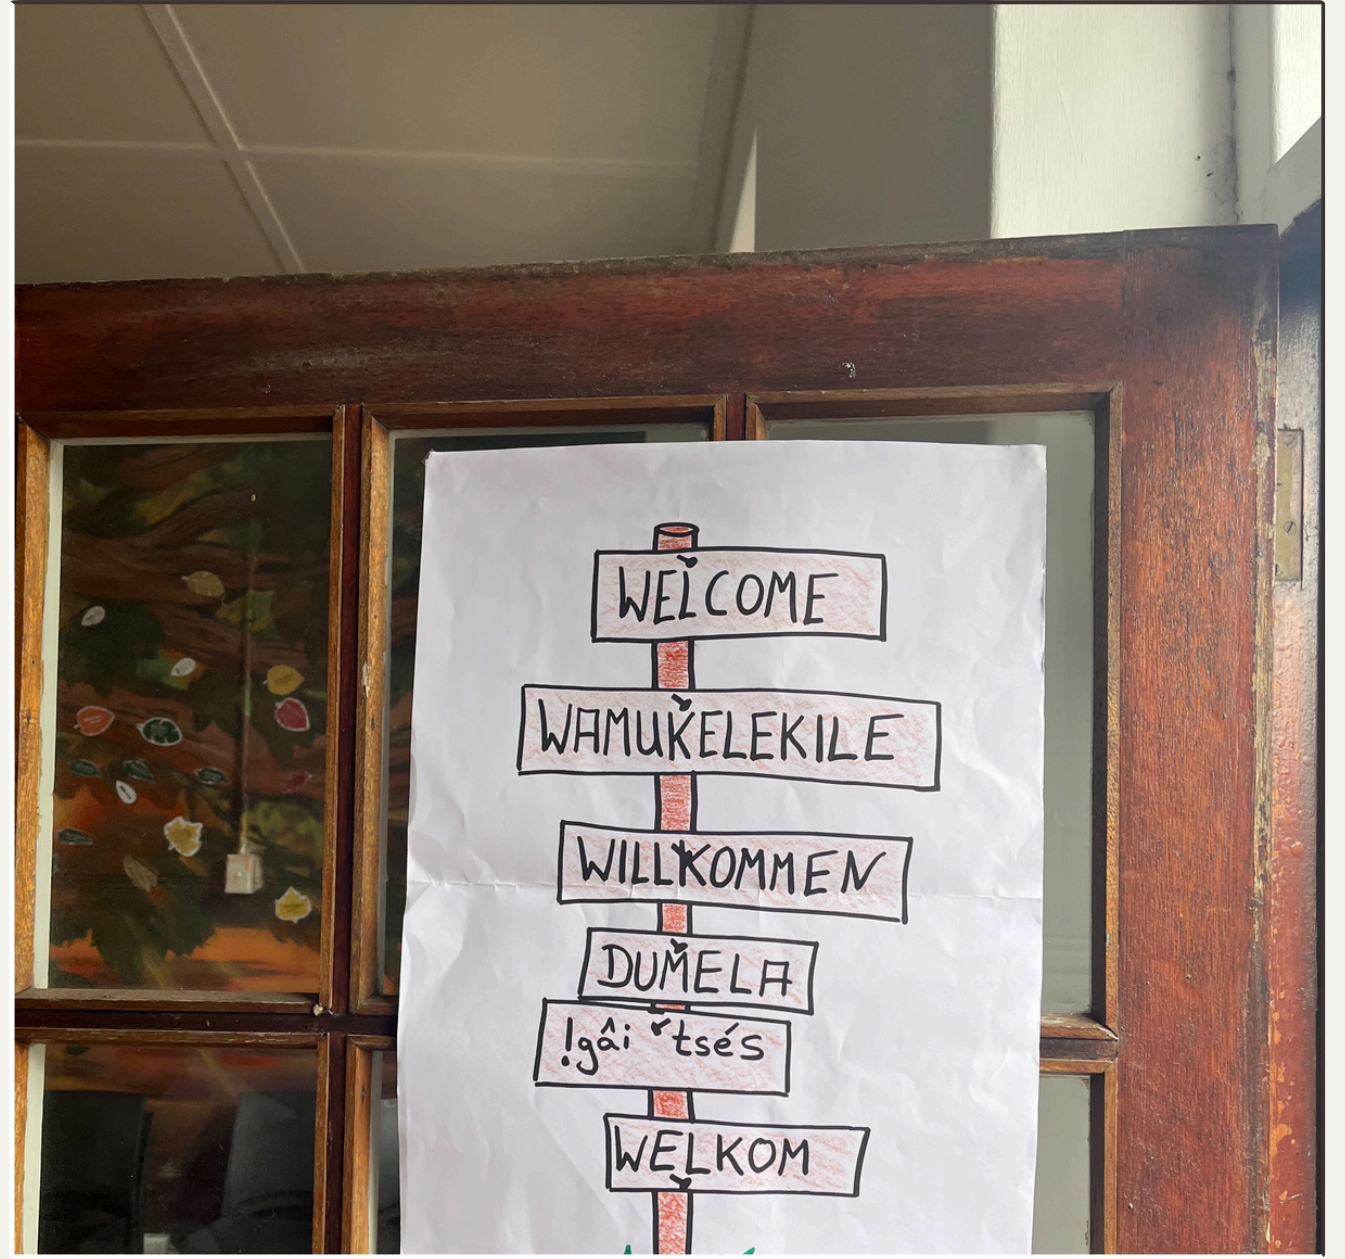 WELCOME
WAMUKELEKILE
WILLKOMMEN
DUMELA
!gâi tsés
WELKOM